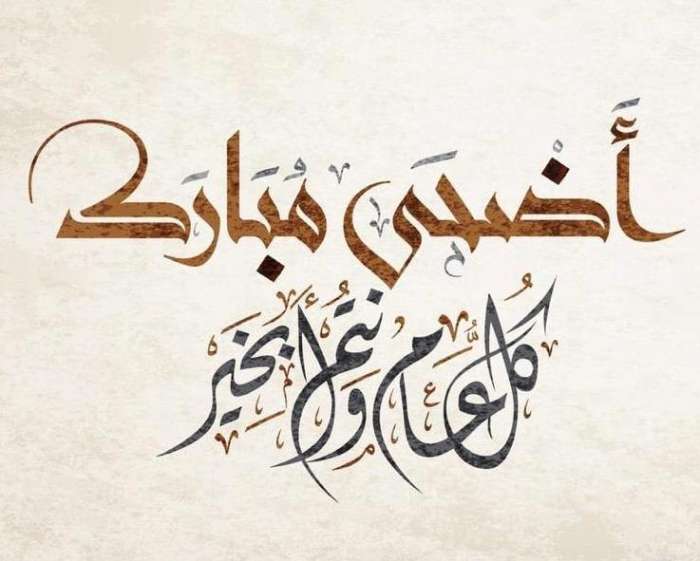 أَضْحَى مُبَارَك
كُل عَام وَأنتُم بخَير